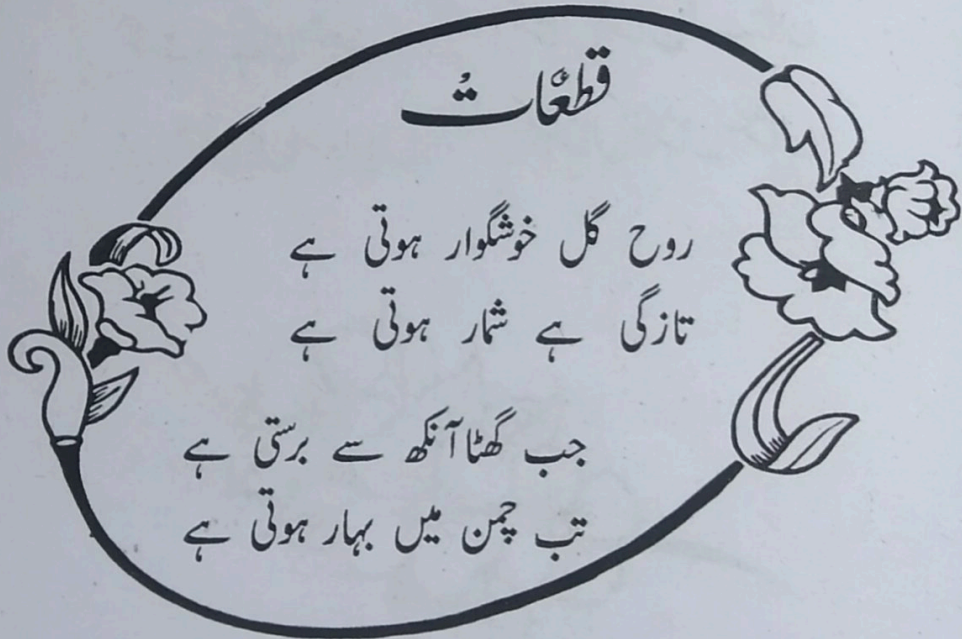 قطعات
روح گل خوشگوار ہوتی ہے
تازگی ہے شمار ہوتی ہے
جب گھٹا آنکھ سے برستی ہے
تب چمن میں بہار ہوتی ہے